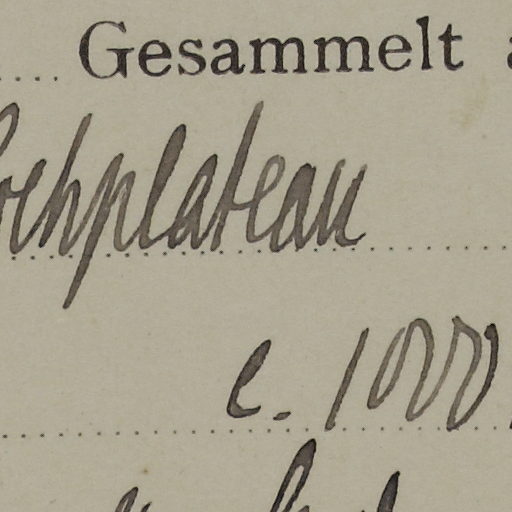 Gesammelt
ochplateau
c. 1000